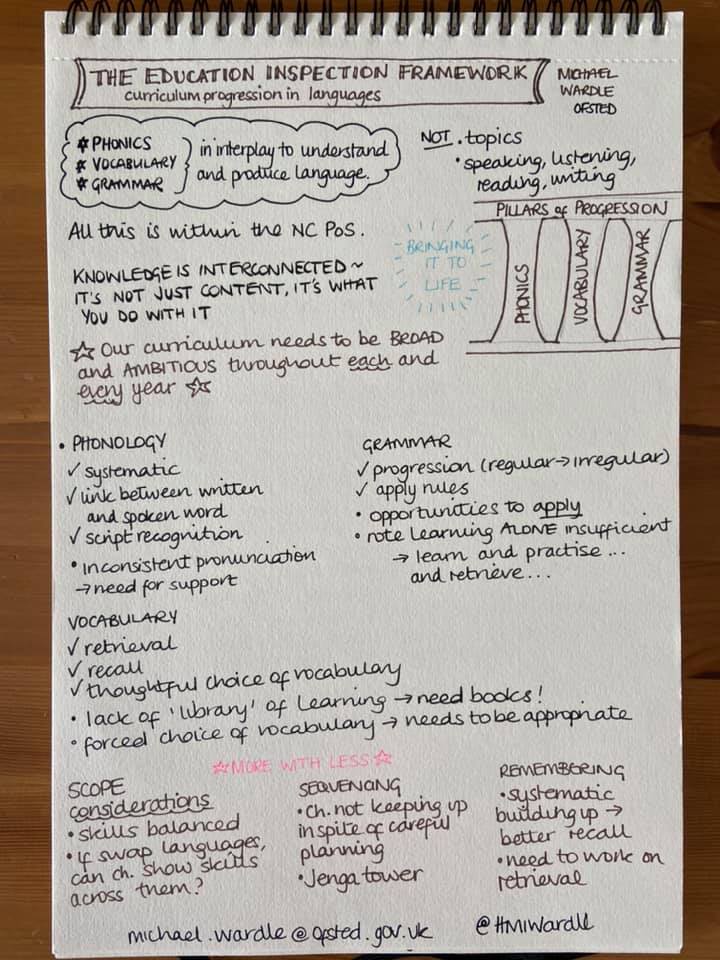 THE EDUCATION INSPECTION FRAMEWORK
curriculum progression in languages
MICHAEL
WARDLE
OFSTED
* PHONICS
* VOCABULARY
* GRAMMAR
in interplay to understand
and produce language.
NOT . topics
• speaking, listening,
reading, writing
All this is within the NC PoS.
KNOWLEDGE IS INTERCONNECTED ~
IT'S NOT JUST CONTENT, IT'S WHAT
YOU DO WITH IT
BRINGING
IT TO
LIFE
PILLARS of PROGRESSION
PHONICS
VOCABULARY
GRAMMAR
☆ Our curriculum needs to be BROAD
and AMBITIOUS throughout each and
every year ☆
• PHONOLOGY
✓ systematic
✓ link between written
and spoken word
✓ script recognition
• inconsistent pronunciation
→ need for support
GRAMMAR
✓ progression (regular → irregular)
✓ apply rules
• opportunities to apply
• rote learning ALONE insufficient
→ learn and practise ...
and retrieve ...
VOCABULARY
✓ retrieval
✓ recall
✓ thoughtful choice of vocabulary
• lack of 'library' of learning → need books!
• forced choice of vocabulary → needs to be appropriate
☆ MORE WITH LESS ☆
SCOPE
considerations
• skills balanced
• if swap languages,
can ch. show skills
across them?
SEQUENCING
• Ch. not keeping up
in spite of careful
planning
• Jenga tower
REMEMBERING
• systematic
building up →
better recall
• need to work on
retrieval
michael.wardle@ofsted.gov.uk
@HMIWardle